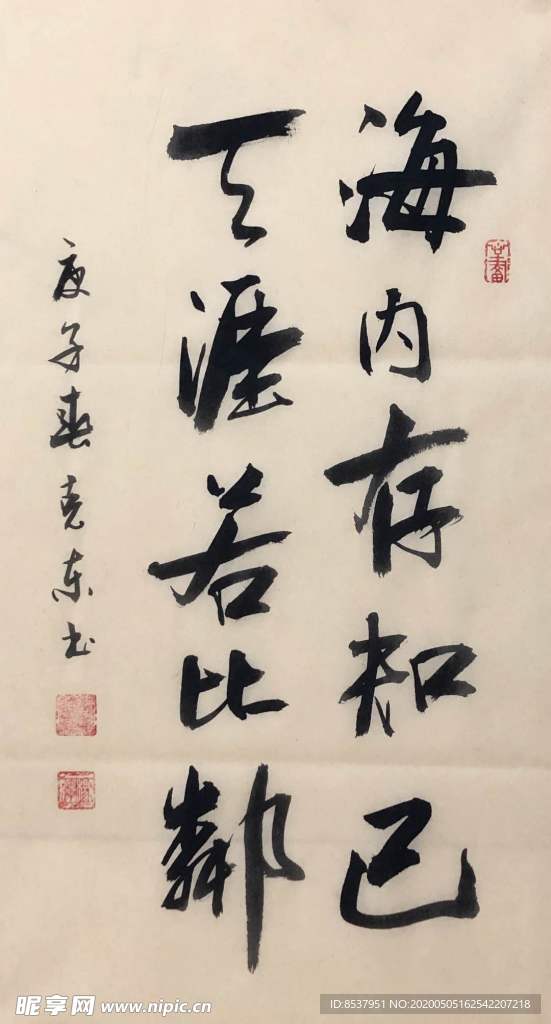 海内存知己
天涯若比鄰
庚子春克东书
昵享网 www.nipic.cn
ID:8537951 NO:20200505162542207218